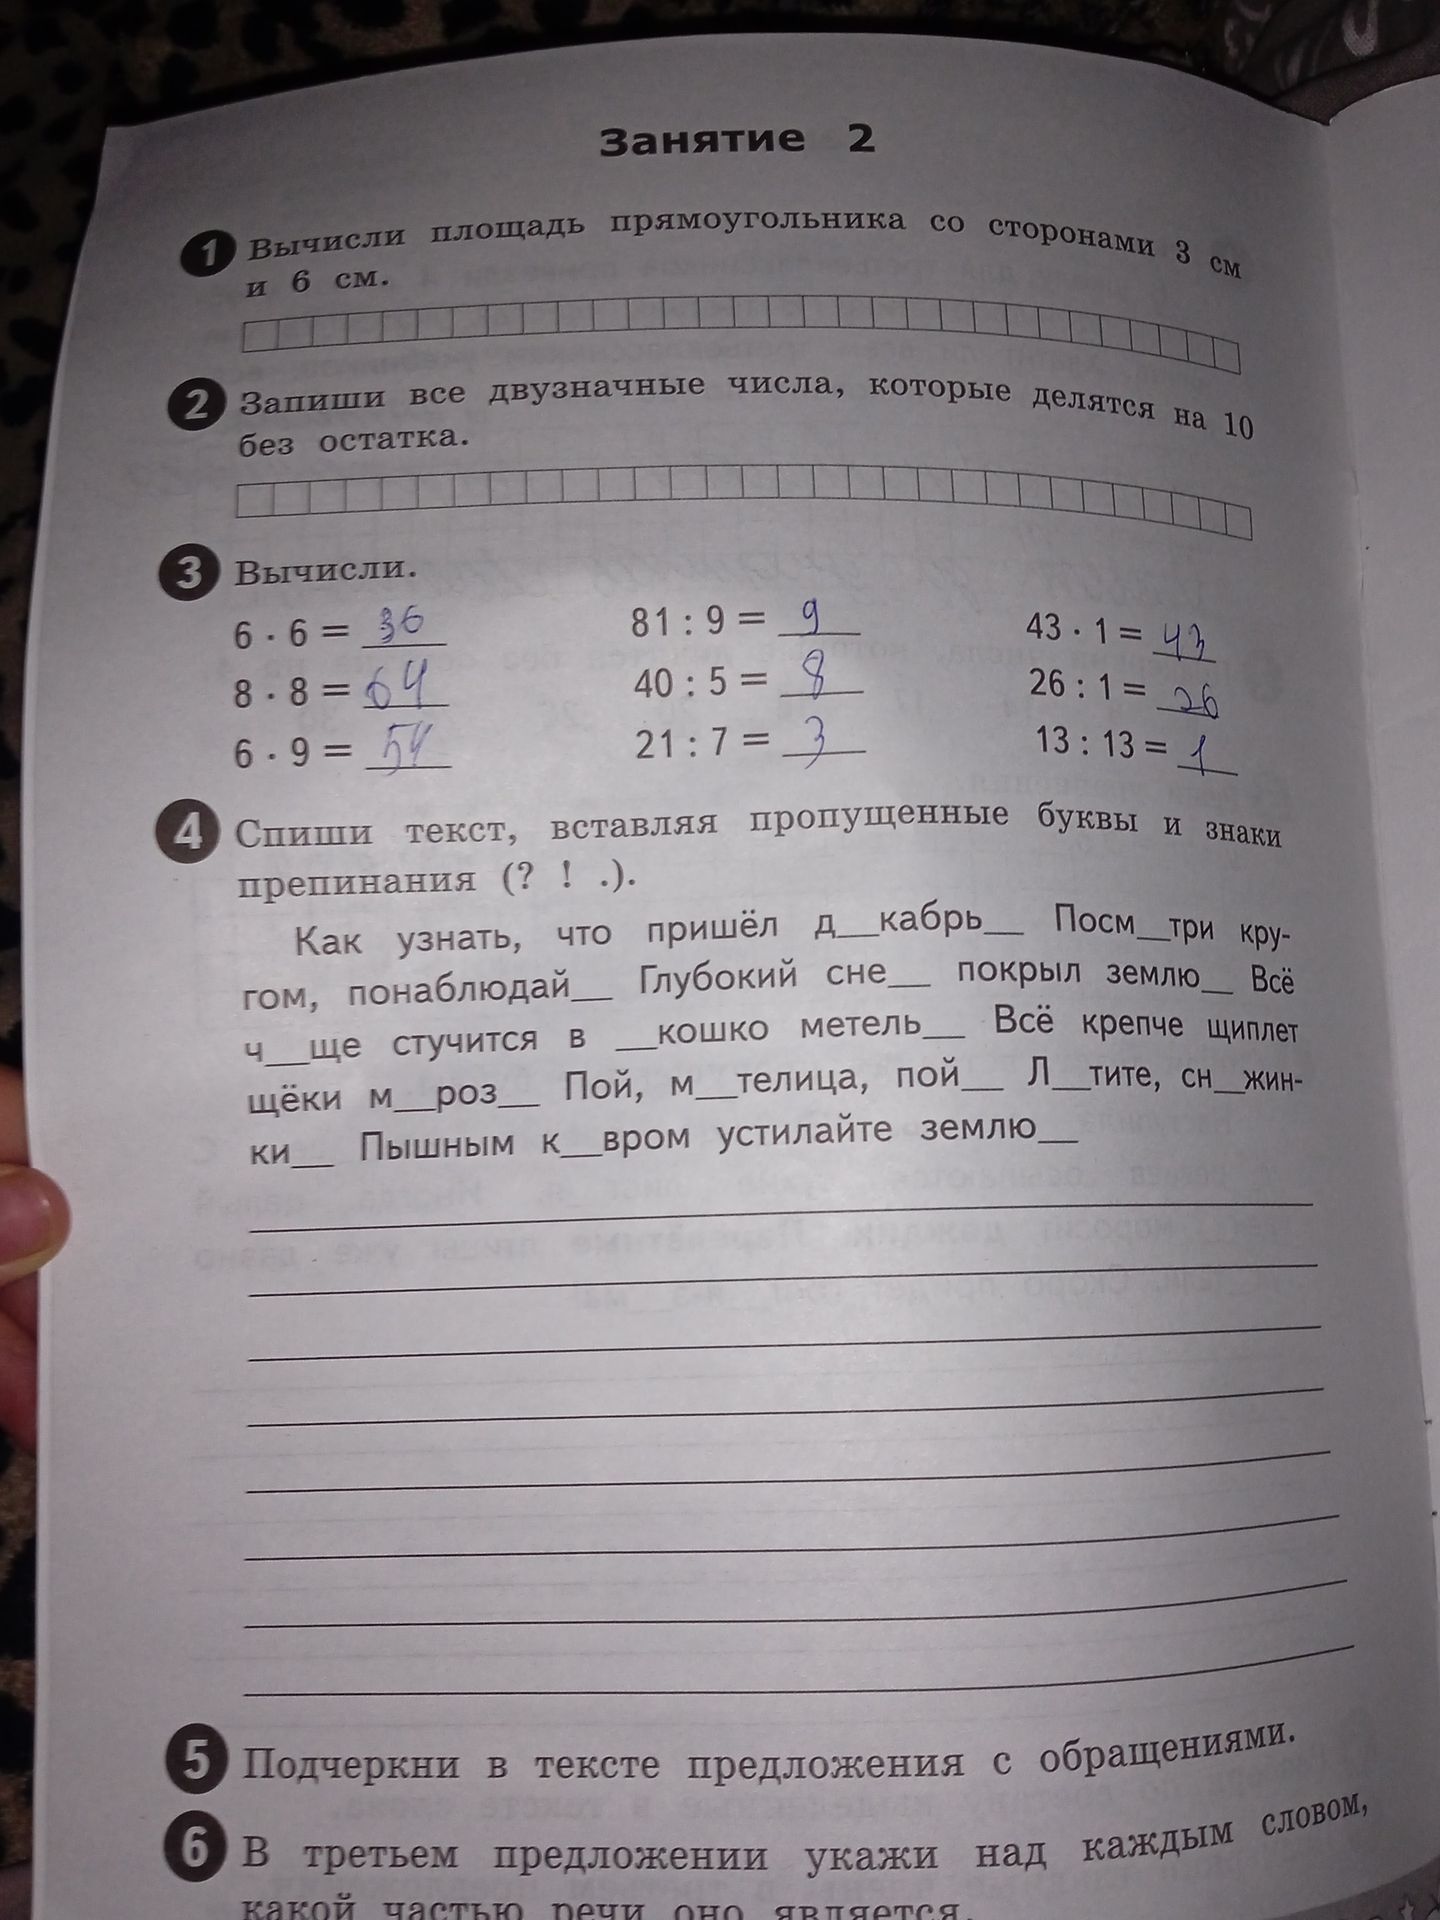 Занятие 2
1 Вычисли площадь прямоугольника со сторонами 3 см
и 6 см.
2 Запиши все двузначные числа, которые делятся на 10
без остатка.
3 Вычисли.
6 · 6 = 36 81 : 9 = 9 43 · 1 = 43
8 · 8 = 64 40 : 5 = 8 26 : 1 = 26
6 · 9 = 54 21 : 7 = 3 13 : 13 = 1
4 Спиши текст, вставляя пропущенные буквы и знаки
препинания (? ! .).
Как узнать, что пришёл д__кабрь__ Посм__три кру-
гом, понаблюдай__ Глубокий сне__ покрыл землю__ Всё
ч__ще стучится в __кошко метель__ Всё крепче щиплет
щёки м__роз__ Пой, м__телица, пой__ Л__тите, сн__жин-
ки__ Пышным к__вром устилайте землю__
5 Подчеркни в тексте предложения с обращениями.
6 В третьем предложении укажи над каждым словом,
какой частью речи оно является.